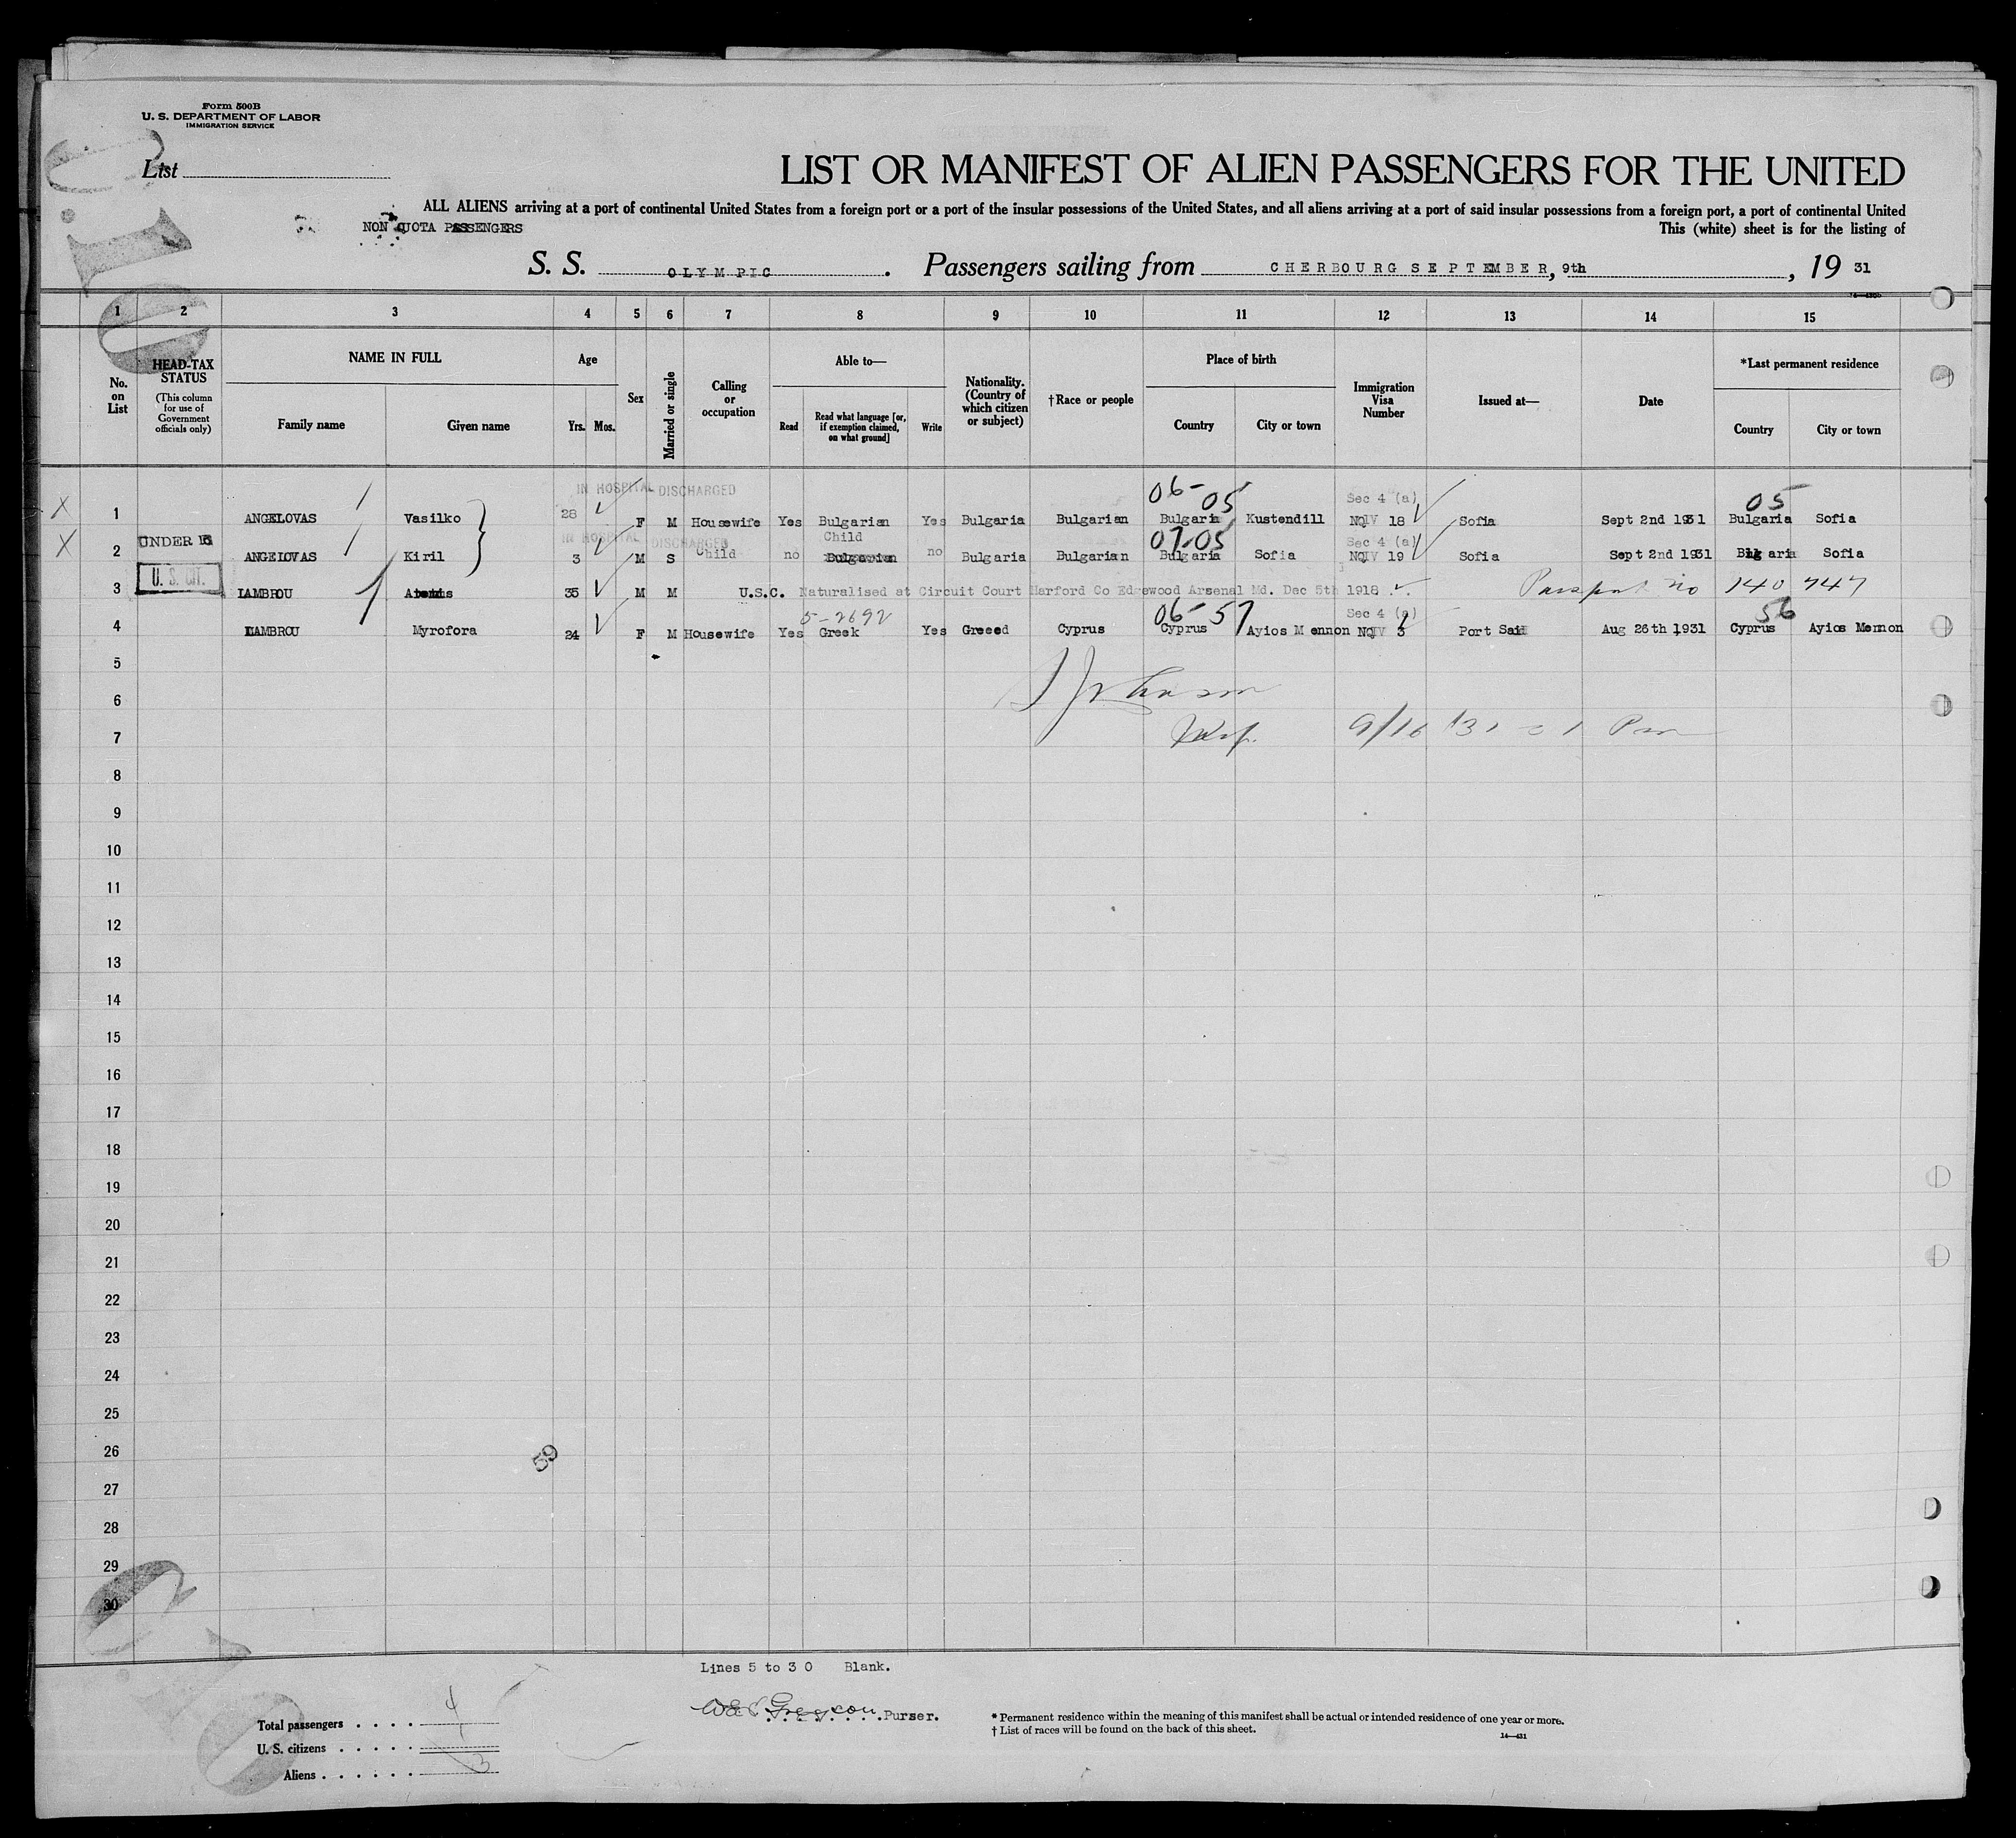 Form 500B
U. S. DEPARTMENT OF LABOR
IMMIGRATION SERVICE
List
LIST OR MANIFEST OF ALIEN PASSENGERS FOR THE UNITED
ALL ALIENS arriving at a port of continental United States from a foreign port or a port of the insular possessions of the United States, and all aliens arriving at a port of said insular possessions from a foreign port, a port of continental United
NON QUOTA PASSENGERS
This (white) sheet is for the listing of
S. S. OLYMPIC. Passengers sailing from CHERBOURG SEPTEMBER, 9th, 19 31
1 2 3 4 5 6 7 8 9 10 11 12 13 14 15
No. on List
HEAD-TAX STATUS
(This column for use of Government officials only)
NAME IN FULL
Family name Given name
Age
Yrs. Mos.
Sex
Married or single
Calling or occupation
Able to—
Read
Read what language [or, if exemption claimed, on what ground]
Write
Nationality. (Country of which citizen or subject)
†Race or people
Place of birth
Country City or town
Immigration Visa Number
Issued at—
Date
*Last permanent residence
Country City or town
IN HOSPITAL DISCHARGED 06-05 Sec 4 (a) 05
X 1 ANGELOVAS Vasilko 28 F M Housewife Yes Bulgarian Yes Bulgaria Bulgarian Bulgaria Kustendill NQIV 18 Sofia Sept 2nd 1931 Bulgaria Sofia
IN HOSPITAL DISCHARGED Child 07-05 Sec 4 (a)
X 2 UNDER 16 ANGELOVAS Kiril 3 M S Child no Bulgarian no Bulgaria Bulgarian Bulgaria Sofia NQIV 19 Sofia Sept 2nd 1931 Bulgaria Sofia
3 U. S. CIT. LAMBROU 35 M M U.S.C. Naturalised at Circuit Court Harford Co Edgewood Arsenal Md. Dec 5th 1918 Passport no 140747
5-2692 06-57 Sec 4 (a) 56
4 LAMBROU Myrofora 24 F M Housewife Yes Greek Yes Greeed Cyprus Cyprus Ayios Mennon NQIV 3 Port Said Aug 26th 1931 Cyprus Ayios Memnon
5
6 Johnson
7 9/16 31 Pm
8
9
10
11
12
13
14
15
16
17
18
19
20
21
22
23
24
25
26
59
27
28
29
30
Lines 5 to 30 Blank.
Purser.
Total passengers . . . . 4
U. S. citizens . . . . . 1
Aliens . . . . . . 3
* Permanent residence within the meaning of this manifest shall be actual or intended residence of one year or more.
† List of races will be found on the back of this sheet.
14—431